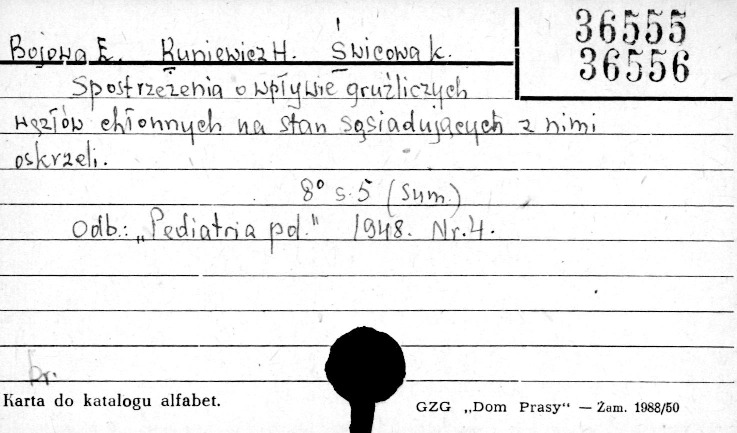 36555
36556
Bojowa E. Kuniewicz H. Świcowa K.
Spostrzeżenia o wpływie gruźliczych
węzłów chłonnych na stan sąsiadujących z nimi
oskrzeli.
8° s. 5 (Sum.)
Odb.: „Pediatria pol." 1948. Nr. 4.
br.
Karta do katalogu alfabet.
GZG „Dom Prasy“ — Zam. 1988/50